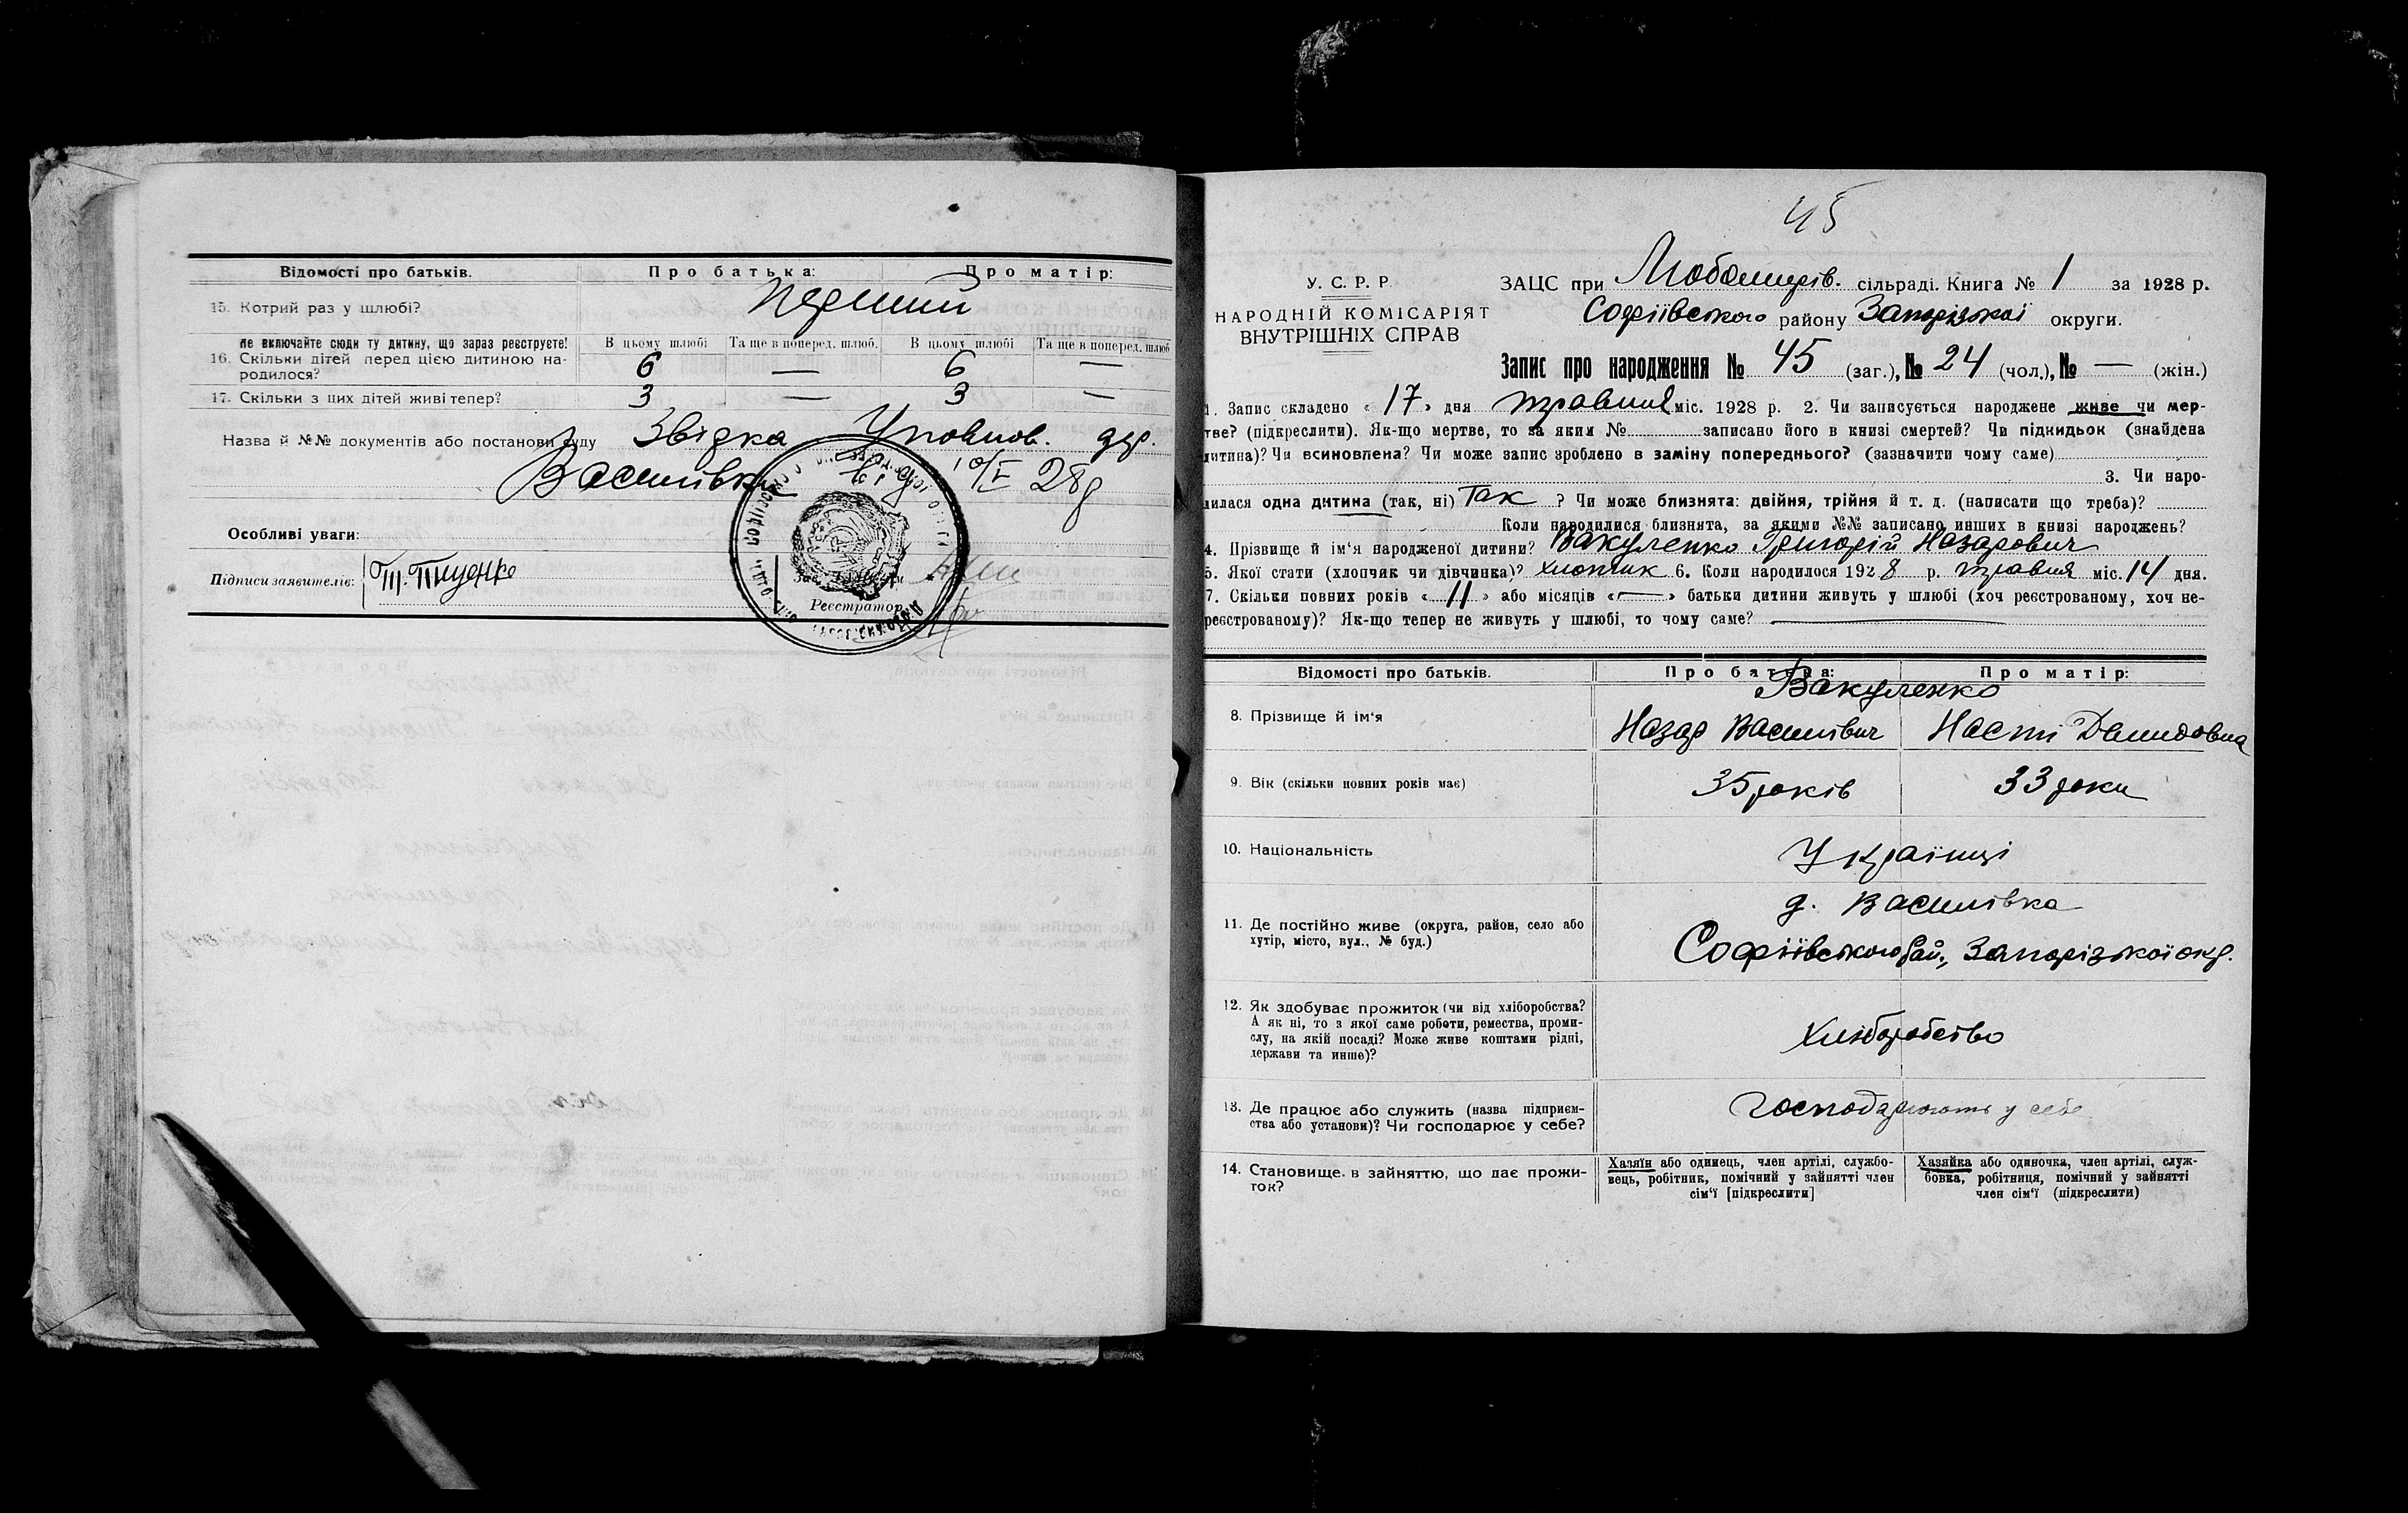 Відомості про батьків. Про батька: Про матір:
15. Котрий раз у шлюбі? Перший
Не включайте сюди ту дитину, що зараз реєструєте! В цьому шлюбі Та ще в поперед. шлюб. В цьому шлюбі Та ще в поперед. шлюб
16. Скільки дітей перед цією дитиною на- 6 — 6 —
родилося?
17. Скільки з них дітей живі тепер? 3 — 3 —
Назва й №№ документів або постанови суду Звідка Уповнов. дер.
Василівки 10/V 28р
Особливі уваги:
Підписи заявителів:
Реєстратор
45
У. С. Р. Р.
НАРОДНІЙ КОМІСАРІЯТ
ВНУТРІШНІХ СПРАВ
ЗАЦС при Любомирів. сільраді. Книга № 1 за 1928 р.
Софіївського району Запорізької округи.
Запис про народження № 45 (заг.), № 24 (чол.), № — (жін.)
1. Запис складено « 17 » дня травня міс. 1928 р. 2. Чи записується народжене живе чи мер-
тве? (підкреслити). Як-що мертве, то за яким № записано його в книзі смертей? Чи підкидьок (знайдена
дитина)? Чи всиновлена? Чи може запис зроблено в заміну попереднього? (зазначити чому саме)
3. Чи наро-
дилася одна дитина (так, ні) Так ? Чи може близнята: двійня, трійня й т. д. (написати що треба)?
Коли народилися близнята, за якими №№ записано инших в книзі народжень?
4. Прізвище й ім'я народженої дитини? Вакуленко Григорій Назарович
5. Якої стати (хлопчик чи дівчинка)? хлопчик 6. Коли народилося 1928 р. травня міс. 14 дня.
7. Скільки повних років « 11 » або місяців « — » батьки дитини живуть у шлюбі (хоч реєстрованому, хоч не-
реєстрованому)? Як-що тепер не живуть у шлюбі, то чому саме? —
Відомості про батьків. Про батька: Про матір:
Вакуленко
8. Прізвище й ім'я Назар Василівич Насті Демидовна
9. Вік (скільки повних років має) 35 років 33 роки
10. Національність Українці
д. Василівка
11. Де постійно живе (округа, район, село або
хутір, місто, вул., № буд.) Софіївського рай., Запорізької окр.
12. Як здобуває прожиток (чи від хліборобства?
А як ні, то з якої саме роботи, ремества, проми-
слу, на якій посаді? Може живе коштами рідні,
держави та инше)? Хліборобство
13. Де працює або служить (назва підприєм-
ства або установи)? Чи господарює у себе? Господарюють у себе
14. Становище в зайняттю, що дає прожи-
ток?
Хазяїн або одинець, член артілі, службо-
вець, робітник, помічний у зайнятті член
сім'ї [підкреслити]
Хазяйка або одиночка, член артілі, служ-
бовка, робітниця, помічний у зайнятті
член сім'ї (підкреслити)